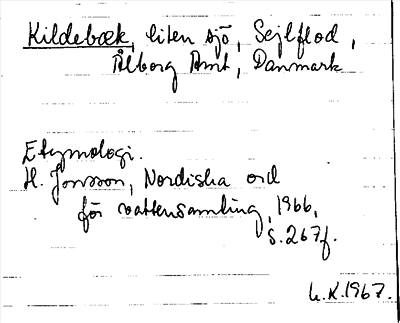 Kildebæk, liten sjö, Sejlflod,
Ålborg Amt, Danmark
Etymologi.
H. Jonsson, Nordiska ord
för vattensamling, 1966,
s. 267f.
L.K. 1967.